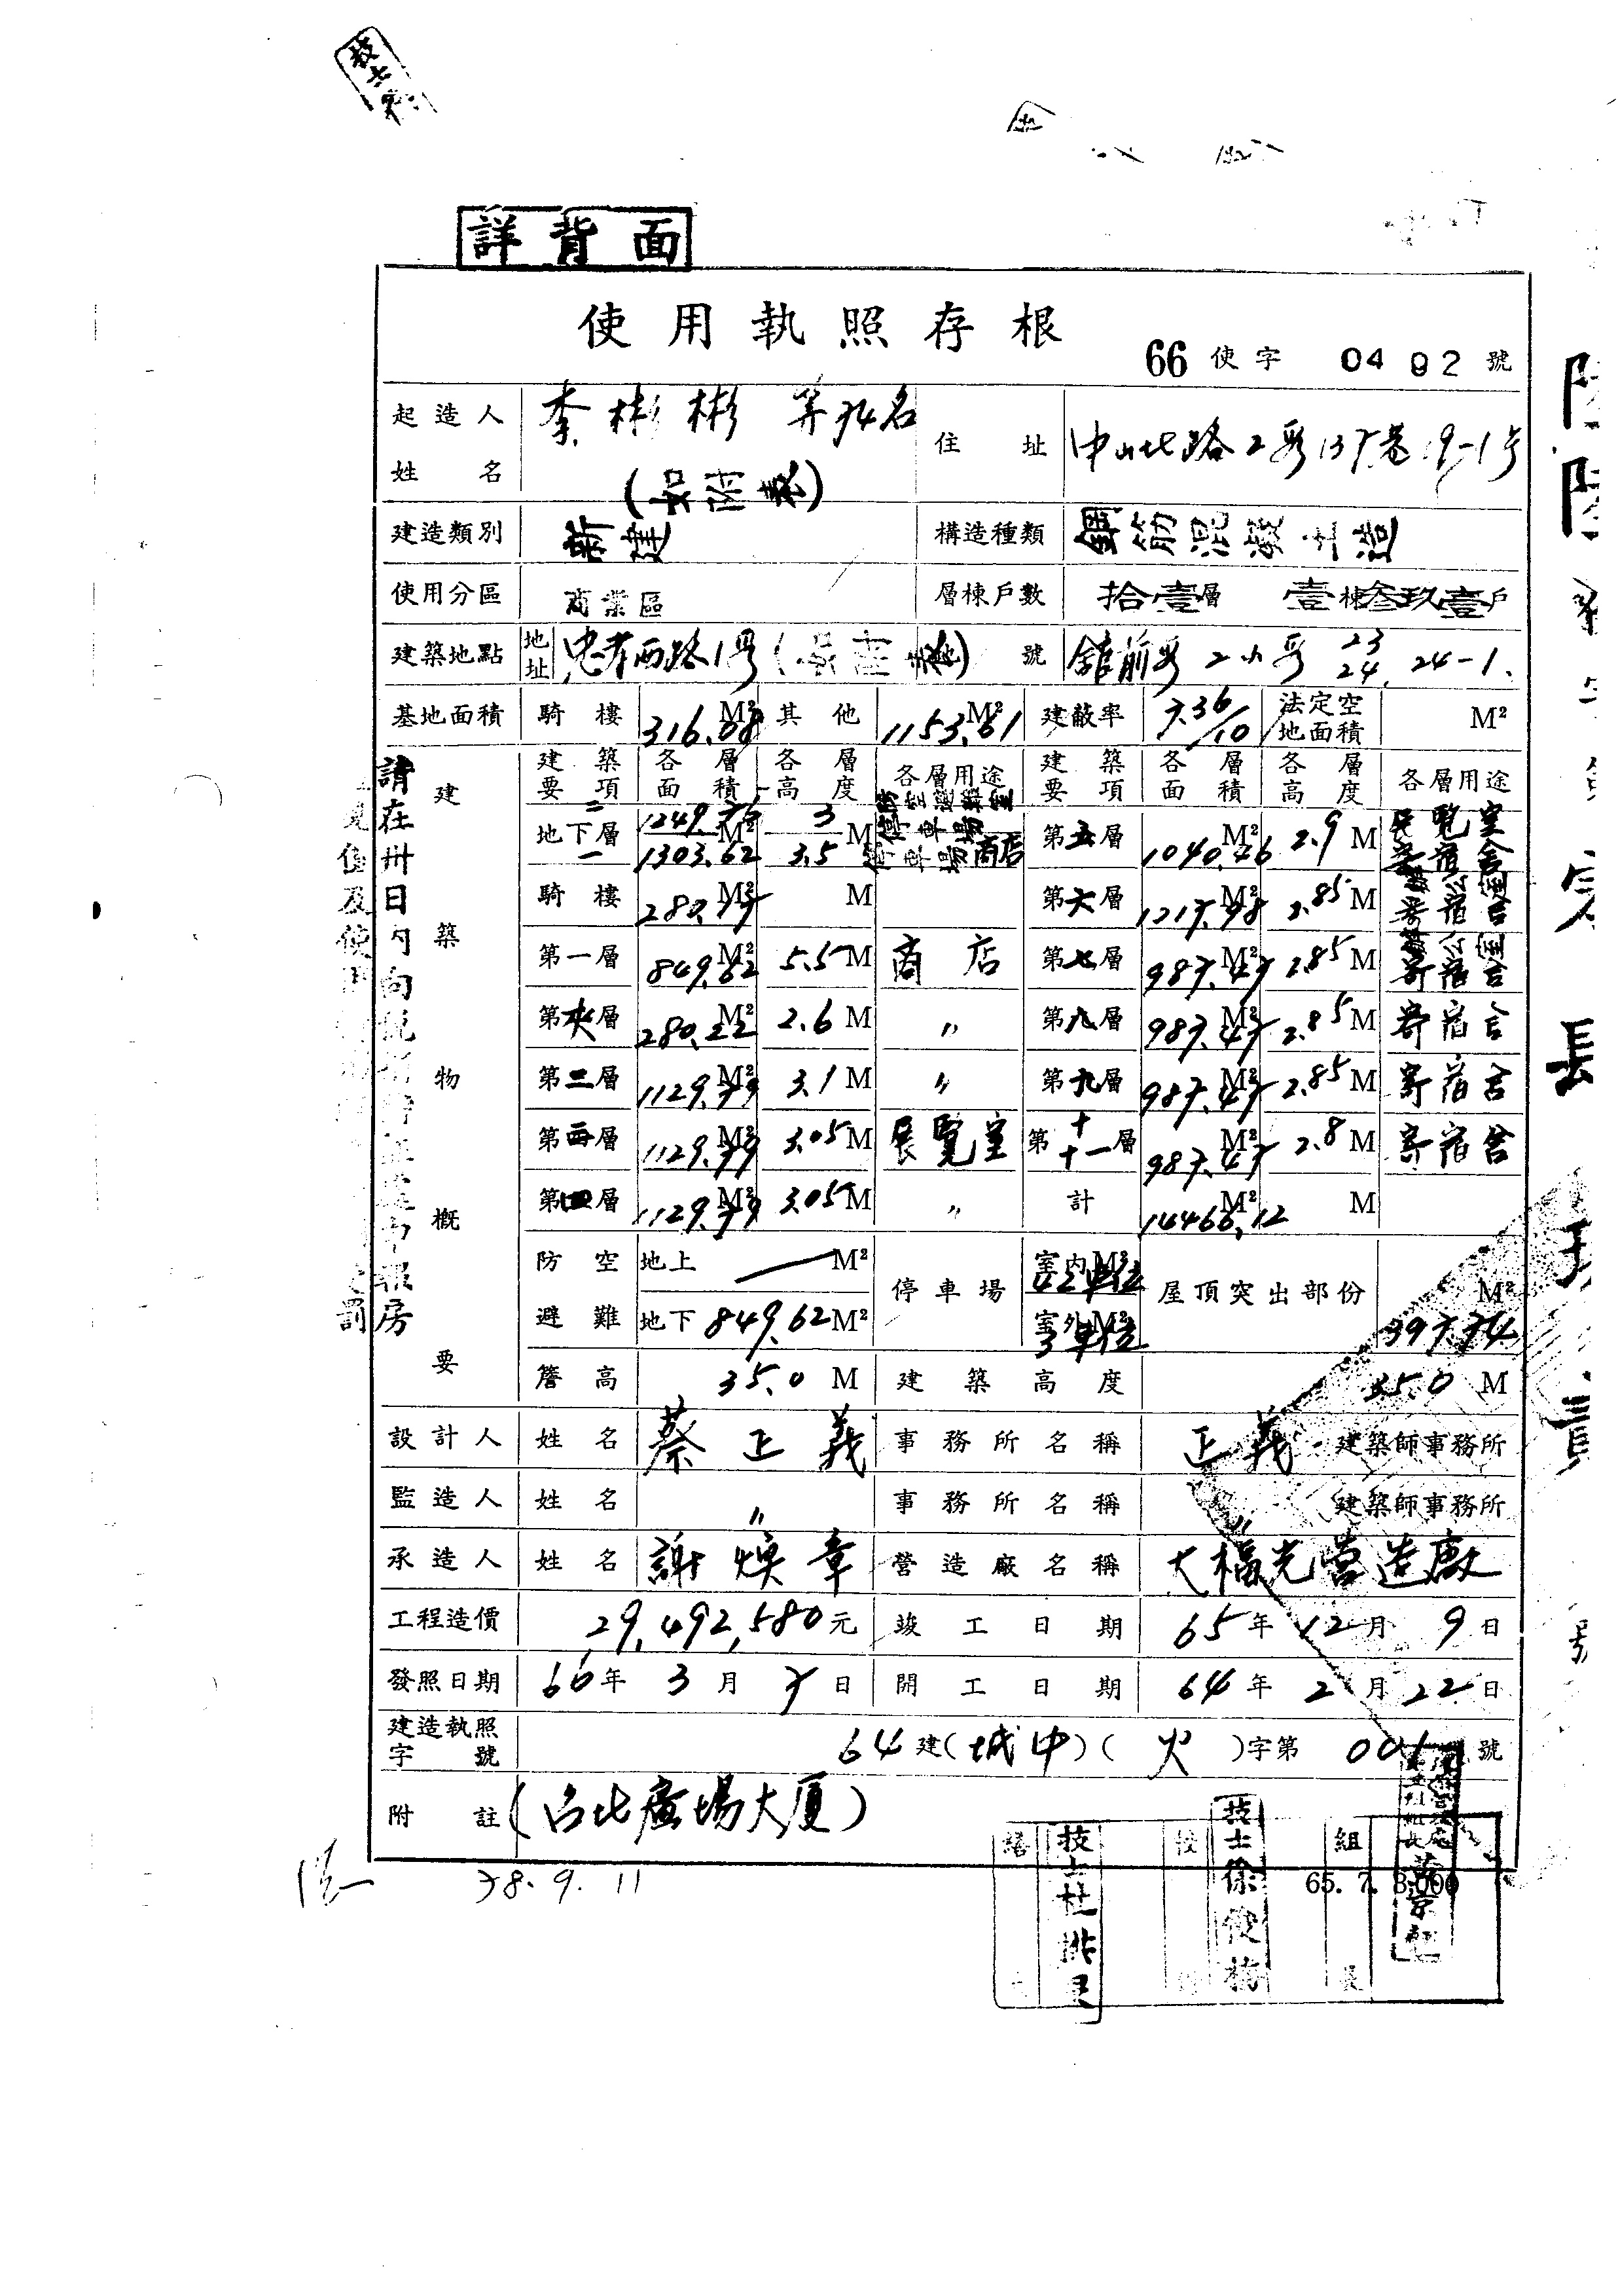 詳背面
使用執照存根
66 使字 0492 號
起造人姓名 李彬彬 等 名 (如附表) 住址 中山北路2段137巷19-1号
建造類別 新建 構造種類 鋼筋混凝土造
使用分區 商業區 層棟戶數 拾壹層 壹棟叁玖壹戶
建築地點 地址 忠孝西路1 地號 舘前段2小段 23 24, 24-1.
基地面積 騎樓 316.08 M² 其他 1153.61 M² 建蔽率 7.36/10 法定空地面積 M²
建築物概要
建築要項 各層面積 各層高度 各層用途 建築要項 各層面積 各層高度 各層用途
地下二層 1249.76 M² 3 M 停車場
地下一層 1303.62 3.5 停車場 商店
第五層 1040.46 M² 2.9 M 展覽室 寄宿舍
騎樓 280.17 M² M 第六層 1217.98 M² 2.85 M 辦公室 寄宿舍
第一層 849.62 M² 5.5 M 商店 第七層 987.47 M² 2.85 M 辦公室 寄宿舍
第夾層 280.22 M² 2.6 M 〃 第八層 987.47 M² 2.85 M 寄宿舍
第二層 1129.79 M² 3.1 M 〃 第九層 987.47 M² 2.85 M 寄宿舍
第三層 1129.79 M² 3.05 M 展覽室 第十 十一層 987.47 M² 2.8 M 寄宿舍
第四層 1129.79 M² 3.05 M 〃 計 14466.12 M² M
防空避難 地上 — M² 停車場 室內 M² 42車位 屋頂突出部份 397.74 M²
地下 849.62 M² 室外 M² 3車位
簷高 35.0 M 建築高度 35.0 M
設計人 姓名 蔡正義 事務所名稱 正義 建築師事務所
監造人 姓名 〃 事務所名稱 〃 建築師事務所
承造人 姓名 謝煥章 營造廠名稱 大福光營造廠
工程造價 29,492,580元 竣工日期 65年12月9日
發照日期 66年3月7日 開工日期 64年2月22日
建造執照字號 64建(城中)(火)字第001號
附註 (台北廣場大廈)
78.9.11
65.7.3,000
技士杜
技士徐
組長
請在卅日內向
房